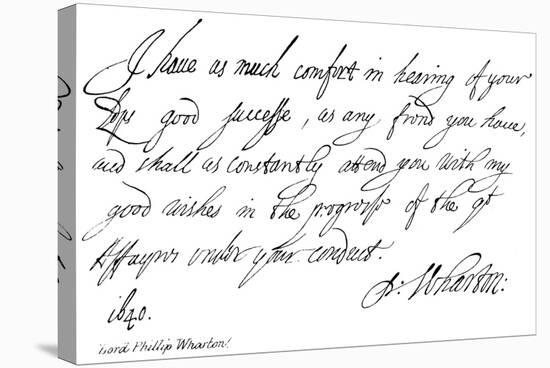 I haue as much comfort in hearing of your
Lops good successe, as any frend you haue,
and shall as constantly attend you with my
good wishes in the progresse of the gt
Affayres under your conduct.
P: Wharton:
1640.
Lord Phillip Wharton!